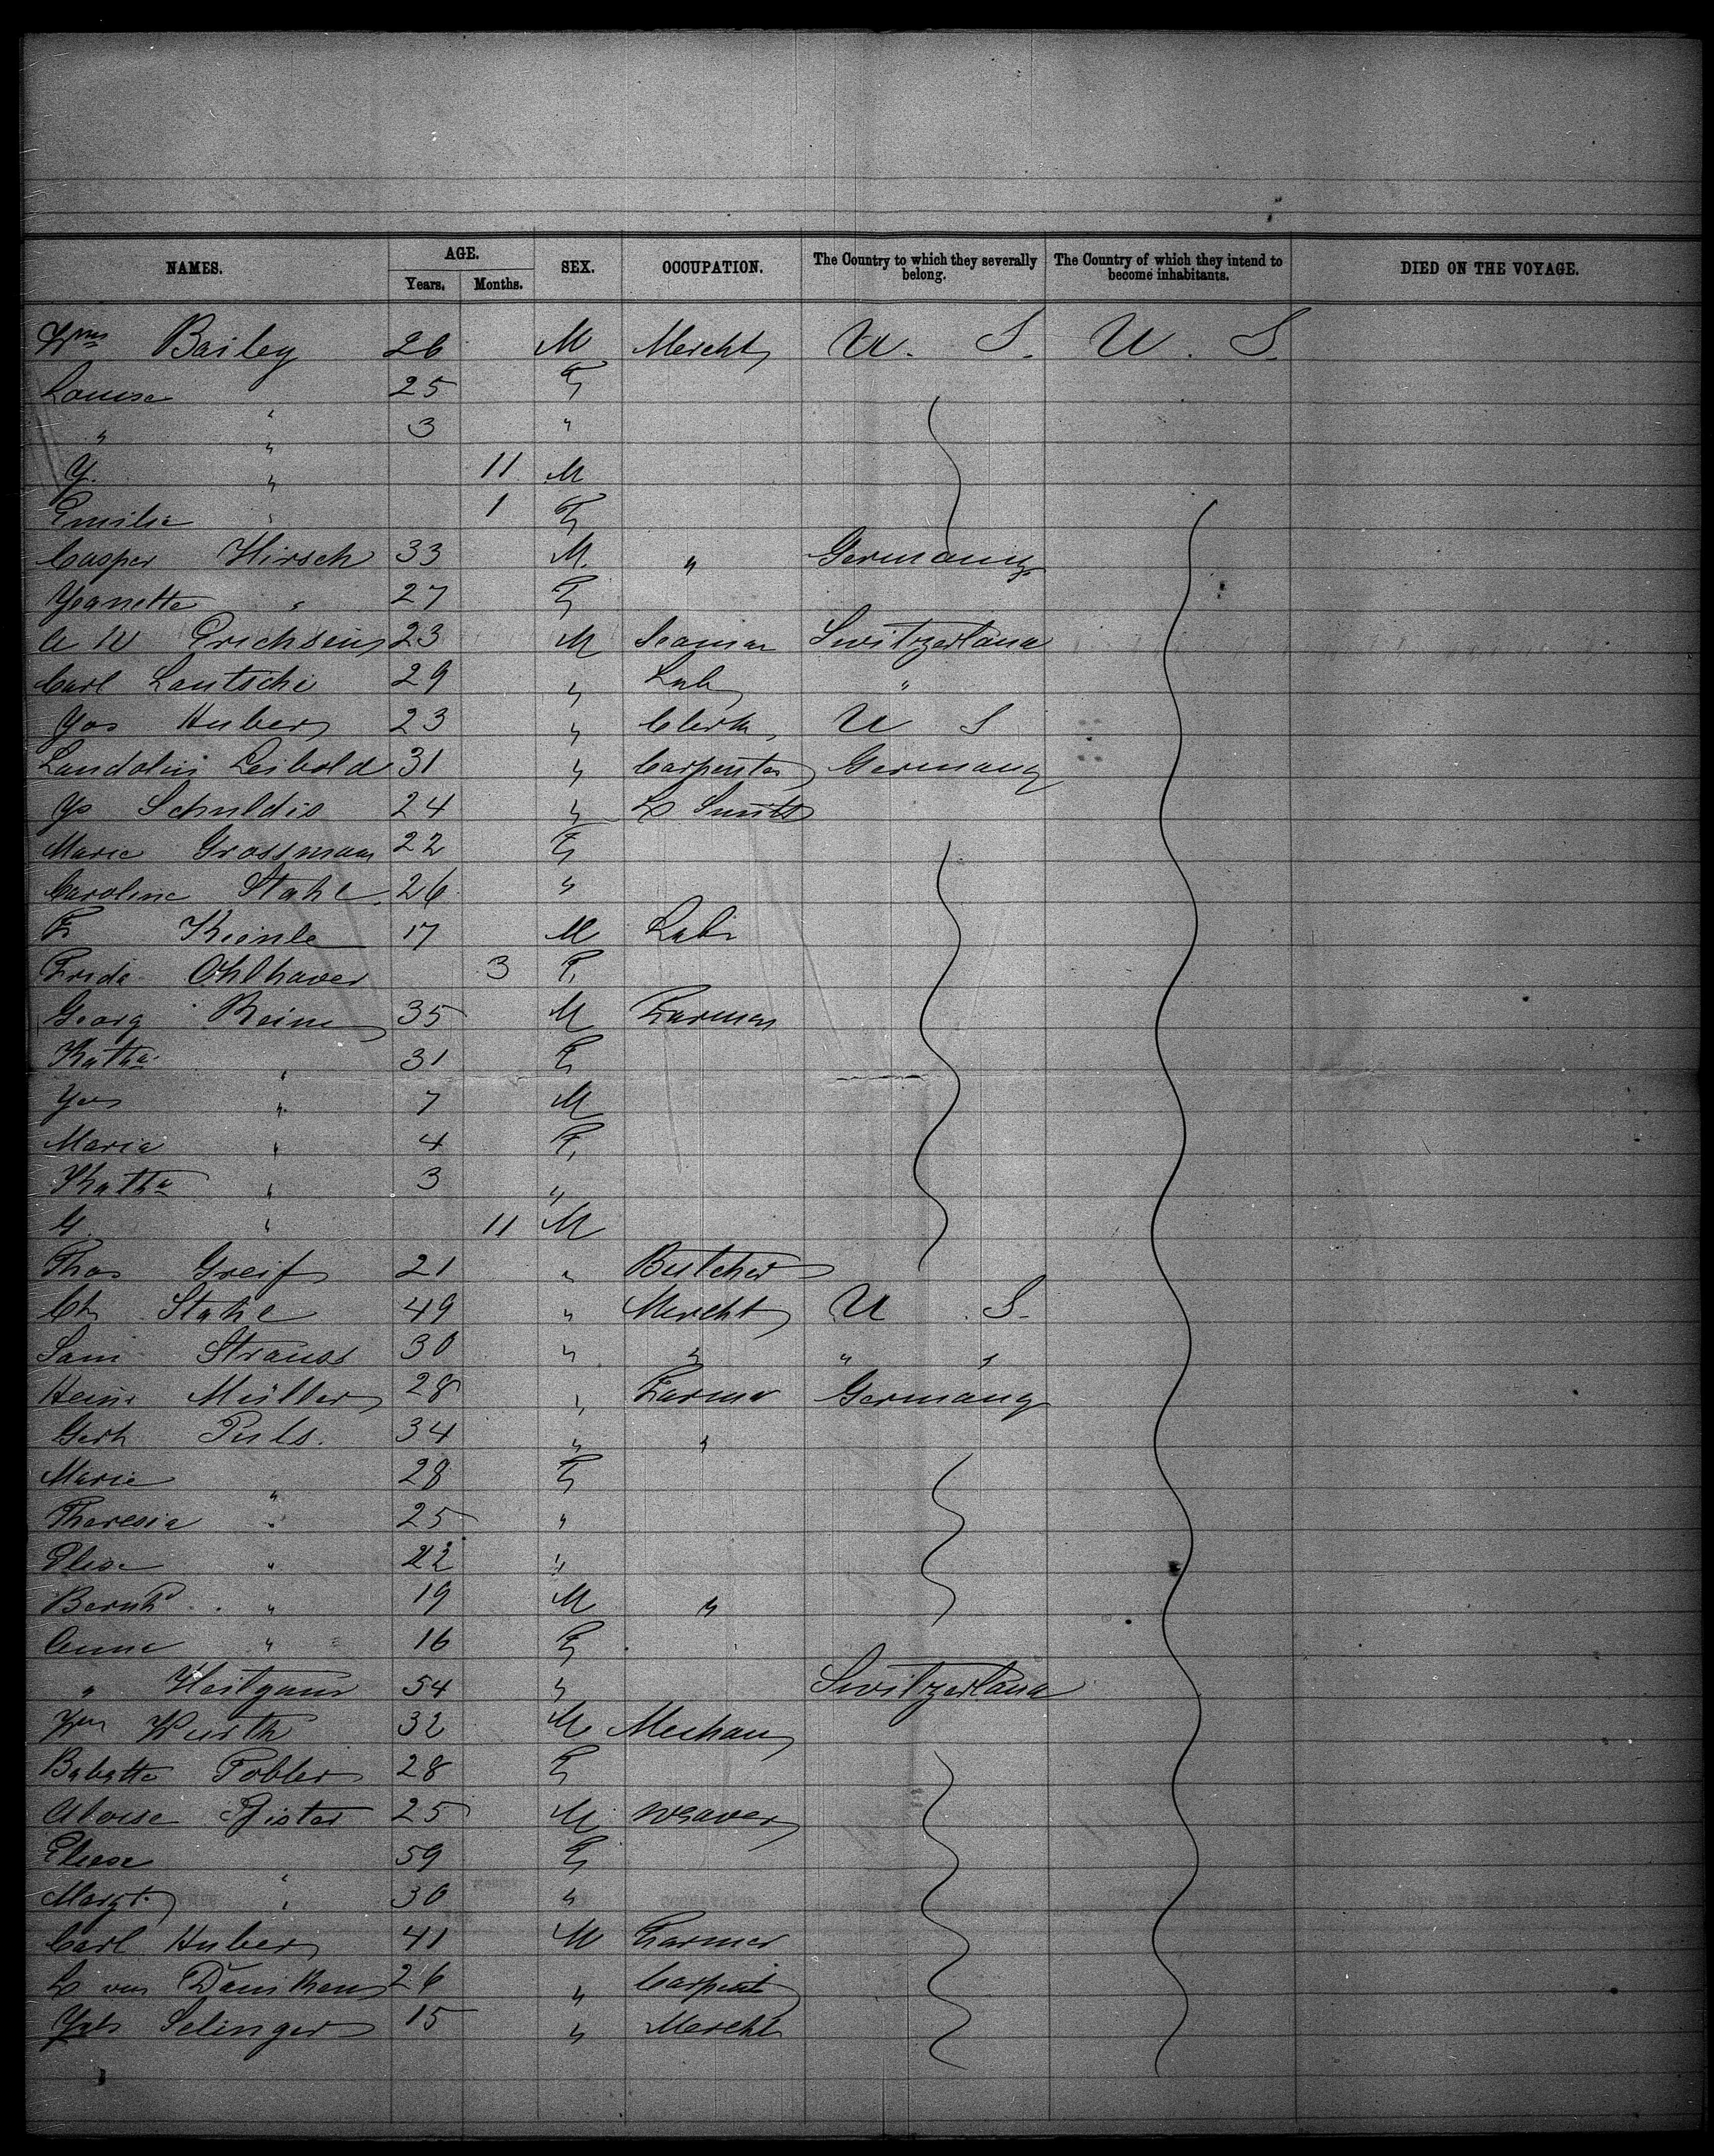 NAMES. AGE. SEX. OCCUPATION. The Country to which they severally belong. The Country of which they intend to become inhabitants. DIED ON THE VOYAGE.
Years. Months.
Wm Bailey 26 M Mercht U. S. U. S.
Louise " 25 F
" " 3 "
J. " 11 M
Emilie " 1 F
Casper Hirsch 33 M. " Germany
Jeanette " 27 F
A W Erichsen 23 M Seaman Switzerland
Carl Lautschi 29 " Lab "
Jos Huber 23 " Clerk U S
Landolin Leibold 31 " Carpenter Germany
Jo Schuldis 24 " L Smith
Marie Grossmann 22 F
Caroline Stahl 26 "
F Kienle 17 M Labr
Frida Ohlhaver 3 F
Georg Reim 35 M Farmer
Katha " 31 F
Jos " 7 M
Maria " 4 F
Katha " 3 "
G. " 11 M
Thos Greif 21 " Butcher
Ch Stahl 49 " Mercht U S.
Sam Strauss 30 " " " "
Heinr Müller 28 " Farmer Germany
Gerh Puls. 34 " "
Marie " 28 F
Theresia " 25 "
Elise " 22 "
Bernhd " 19 M "
Anna " 16 F
" 54 " Switzerland
Wm Wurth 32 M Mechan
Babette Tobler 28 F
Aloise Pfister 25 M Weaver
Eliese " 59 F
Margt. " 30 "
Carl Huber 41 M Farmer
L von Däniken 26 " Carpent
Jak Selinger 15 " Mercht